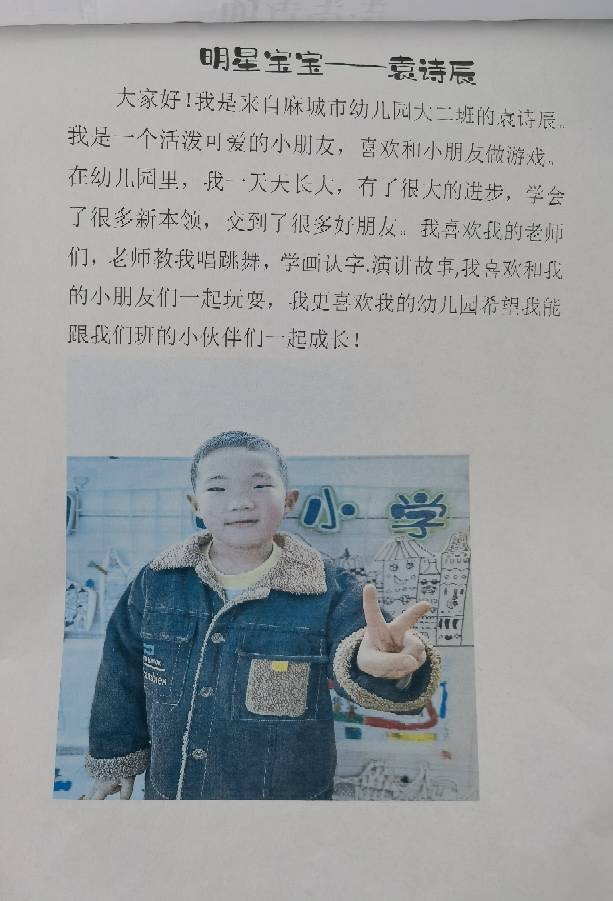 明星宝宝——袁诗辰
大家好！我是来自麻城市幼儿园大二班的袁诗辰。
我是一个活泼可爱的小朋友，喜欢和小朋友做游戏。
在幼儿园里，我一天天长大，有了很大的进步，学会
了很多新本领，交到了很多好朋友。我喜欢我的老师
们，老师教我唱跳舞，学画认字.演讲故事,我喜欢和我
的小朋友们一起玩耍，我更喜欢我的幼儿园希望我能
跟我们班的小伙伴们一起成长！
小学